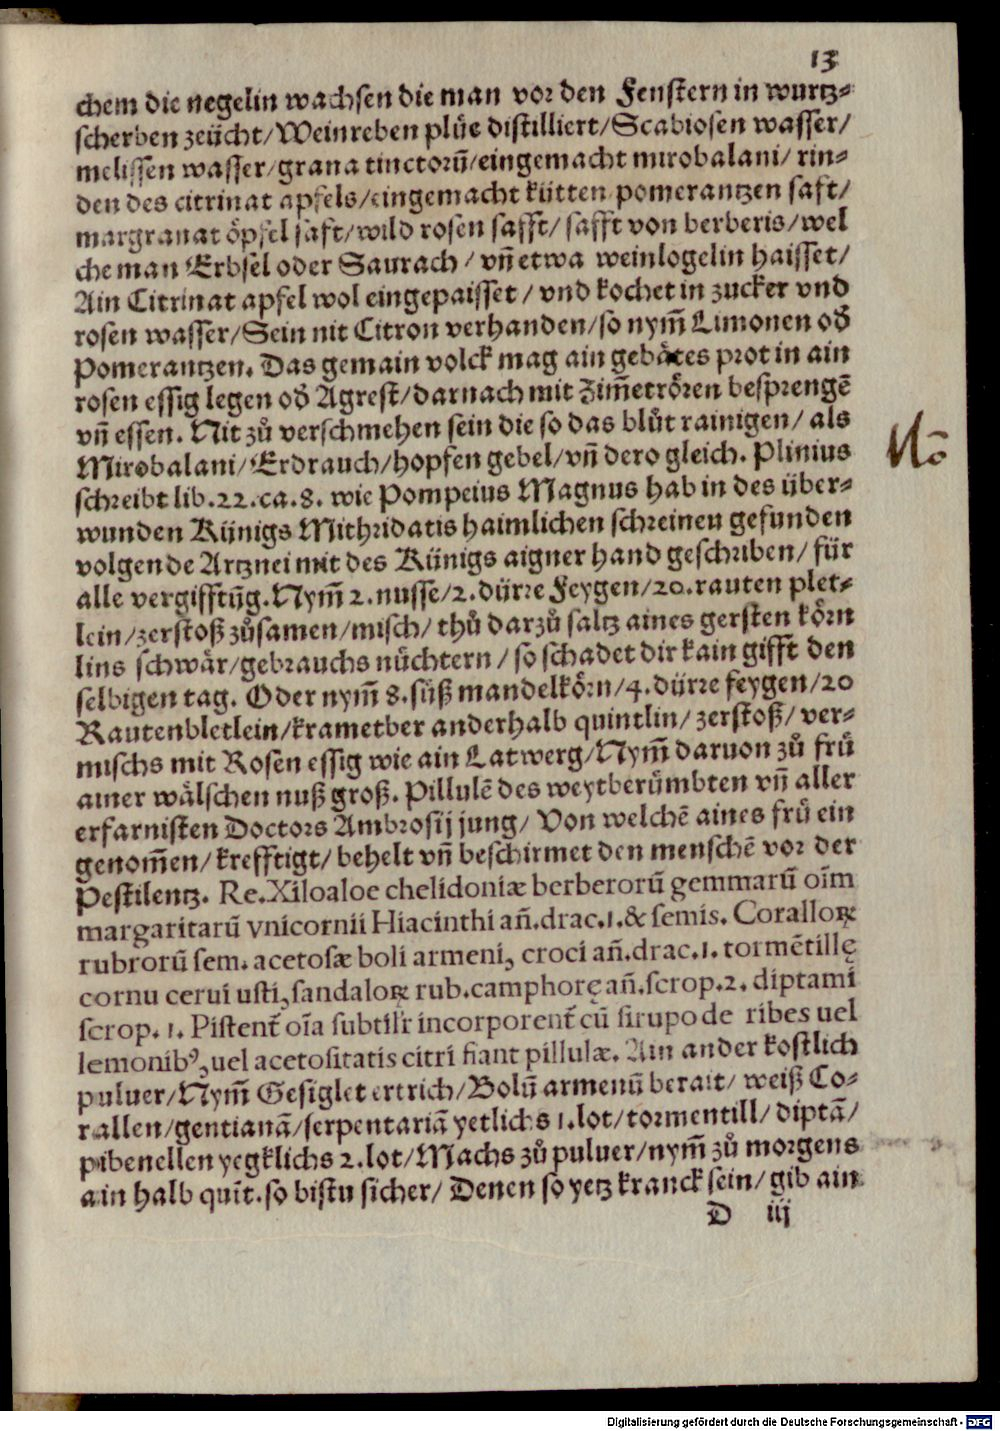 13
chem die negelin wachsen die man vor den Fenstern in wurtz-
scherben zeücht/Weinreben plůe distilliert/Scabiosen wasser/
melissen wasser/grana tinctorū/eingemacht mirobalani/ rin-
den des citrinat apfels/eingemacht kütten pomerantzen saft/
margranat öpfel saft/wild rosen safft/ safft von berberis/wel
che man Erbsel oder Saurach/ vn̄ etwa weinlogelin haisset/
Ain Citrinat apfel wol eingepaisset/ vnd kochet in zucker vnd
rosen wasser/Sein nit Citron verhanden/so nym̄ Limonen oď
Pomerantzen. Das gemain volck mag ain gebåtes prot in ain
rosen essig legen oď Agrest/darnach mit Zim̄etrören besprengē
vn̄ essen. Nit zů verschmehen sein die so das blůt rainigen/ als
Mirobalani/Erdrauch/hopfen gebel/vn̄ dero gleich. Plinius
schreibt lib.22.ca.8. wie Pompeius Magnus hab in des über-
wunden Künigs Mithridatis haimlichen schreinen gefunden
volgende Artznei mit des Künigs aigner hand geschriben/ für
alle vergifftūg. Nym̄ 2. nusse/2. dürre Feygen/20. rauten plet-
lein/zerstoß zůsamen/misch/ thů darzů saltz aines gersten körn
lins schwär/gebrauchs nüchtern/ so schadet dir kain gifft den
selbigen tag. Oder nym̄ 8. süß mandelkörn/4. dürre feygen/20
Rautenbletlein/krametber anderhalb quintlin/ zerstoß/ ver-
mischs mit Rosen essig wie ain Latwerg/Nym̄ daruon zů frü
ainer wälschen nuß groß. Pillulē des weytberümbten vn̄ aller
erfarnisten Doctors Ambrosij jung/ Von welchē aines frü ein
genom̄en/krefftigt/ behelt vn̄ beschirmet den menschē vor der
Pestilentz. Re. Xiloaloe chelidoniæ berberorū gemmarū oīm
margaritarū vnicornii Hiacinthi an̄.drac.1.& semis. Coralloꝝ
rubrorū sem. acetosæ boli armeni, croci an̄.drac.1. tormētillę
cornu cerui usti, sandaloꝝ rub. camphorę an̄.scrop.2. diptami
scrop. 1. Pistent̄ oīa subtilr̄ incorporent̄ cū sirupo de ribes uel
lemonibꝰ, uel acetositatis citri fiant pillulæ. Ain ander kostlich
puluer/Nym̄ Gesiglet ertrich/Bolū armenū berait/ weiß Co-
rallen/gentianā/serpentariā yetlichs 1.lot/tormentill/ diptā/
pibenellen yegklichs 2.lot/Machs zů puluer/nym̄ zů morgens
ain halb quīt. so bistu sicher/ Denen so yetz kranck sein/ gib ain
D iij
Digitalisierung gefördert durch die Deutsche Forschungsgemeinschaft - DFG